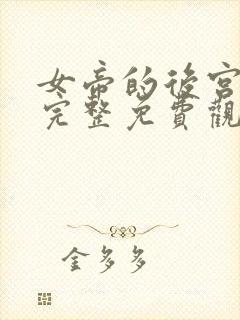 女帝的後宮
完整免費觀
金多多